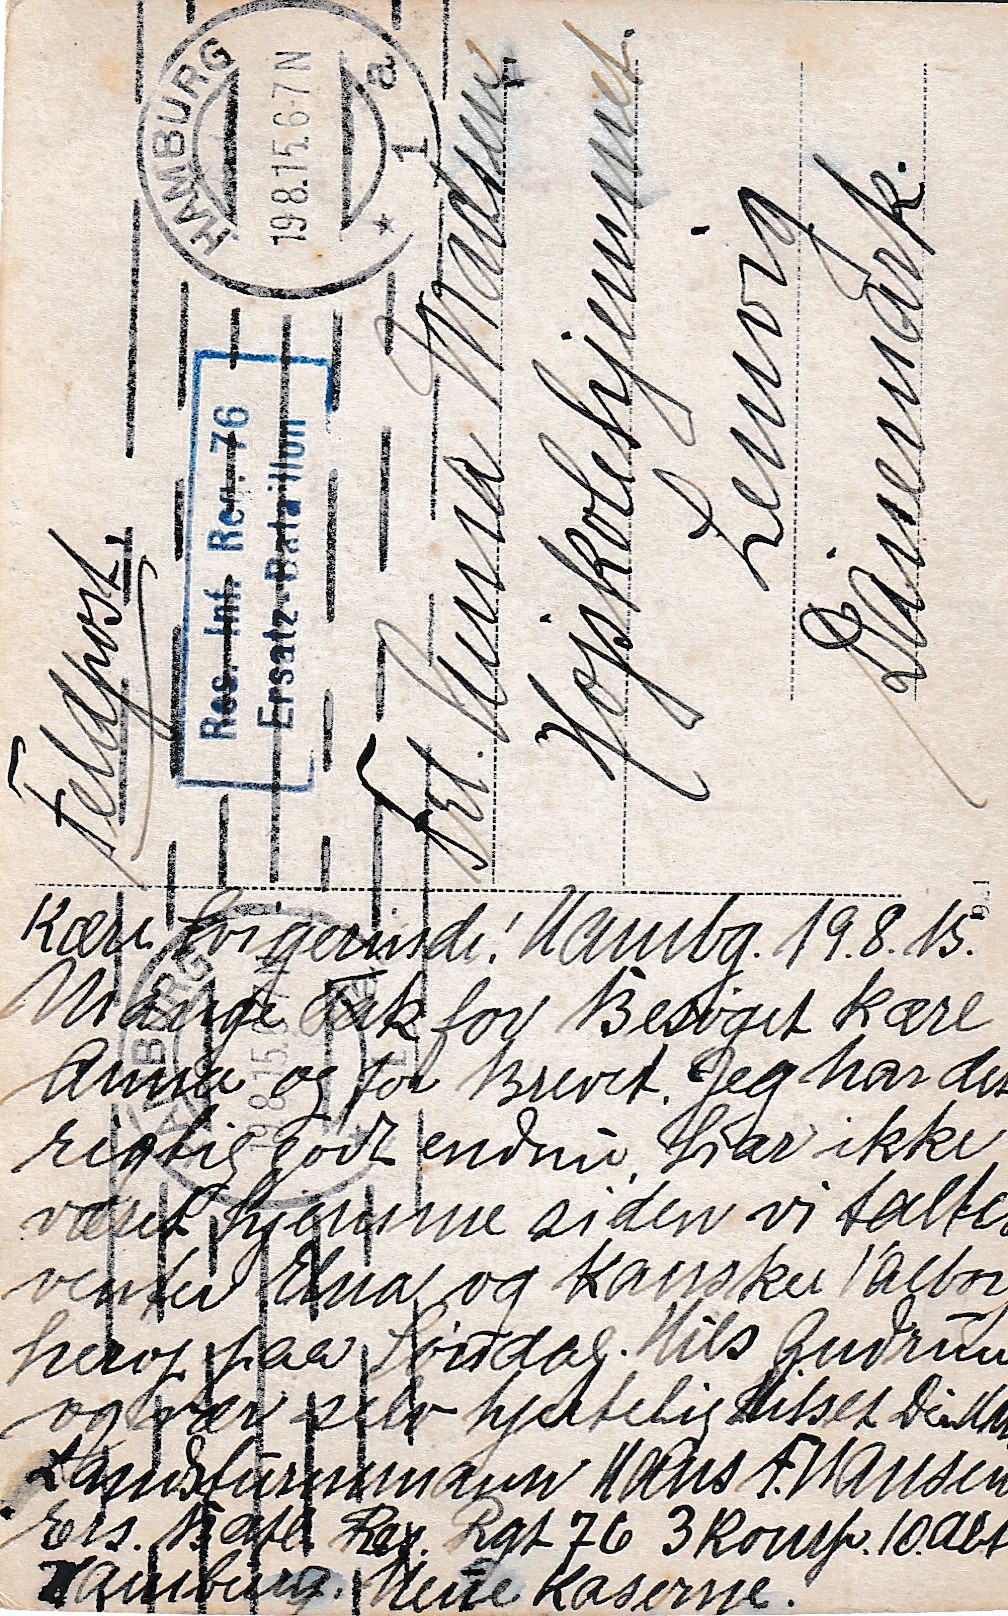 Feldpost.
HAMBURG
19.8.15.6-7N
* 1 a
Res. Inf. Reg. 76
Ersatz-Bataillon
Frl. Anna Madsen
Højskolehjemmet.
Lemvig
Dänemark.
Kære Svigerinde! Hambg. 19.8.15.
Mange Tak for Besøget kære
Anna og for Brevet. Jeg har det
rigtig godt endnu, har ikke
været hjemme siden vi talte
venter Elna og kanske Valbor
herop paa Søndag. Hils Gudrun
og vær selv hjertelig hilset Din
Landsturmmann Hans F. Hansen
Ers. Batl. Res. Rgt 76 3 Komp. 10. Abt
Hamburg. Neue Kaserne.